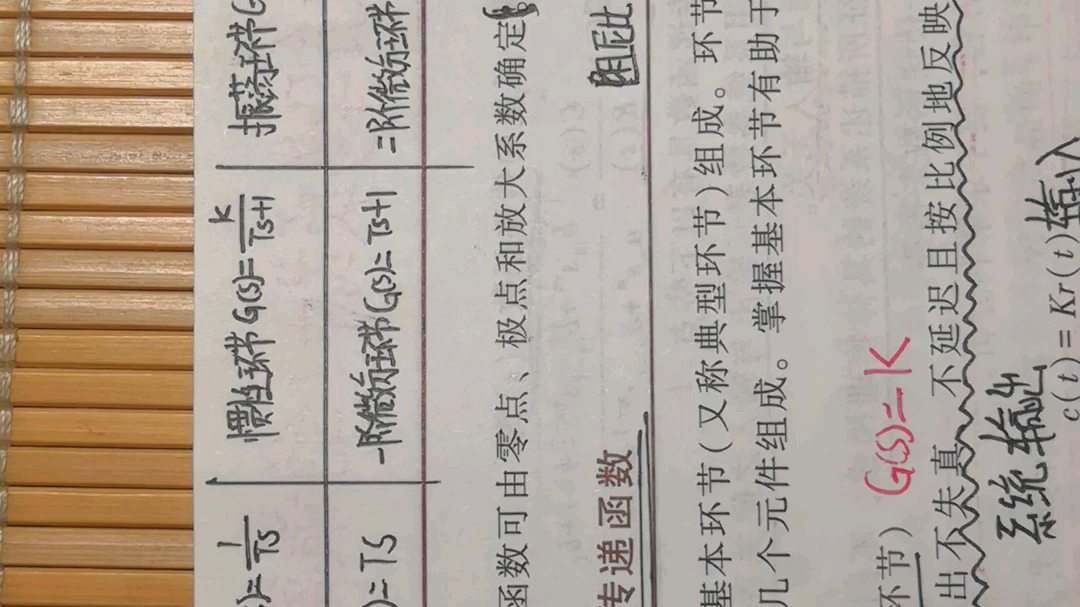 )=1/TS 惯性环节 G(s)=K/TS+1 振荡环节G
)=TS 一阶微分环节G(s)=TS+1 二阶微分环节
函数可由零点、极点和放大系数确定
阻尼比
传递函数
基本环节(又称典型环节)组成。环节
几个元件组成。掌握基本环节有助于
环节) G(s)=K
出不失真、不延迟且按比例地反映
系统输出 输入
c(t)=Kr(t)